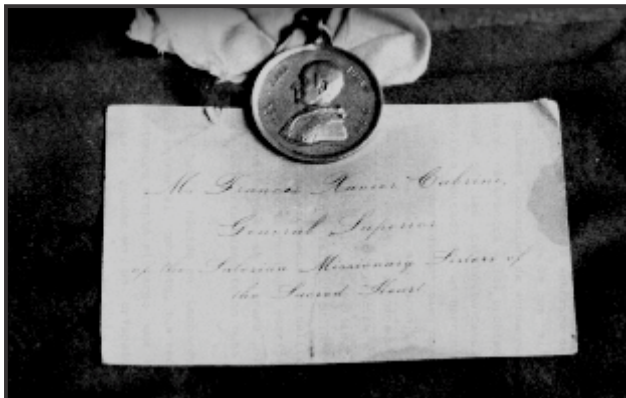 M. Frances Xavier Cabrini,
General Superior
of the Salesian Missionary Sisters of
the Sacred Heart